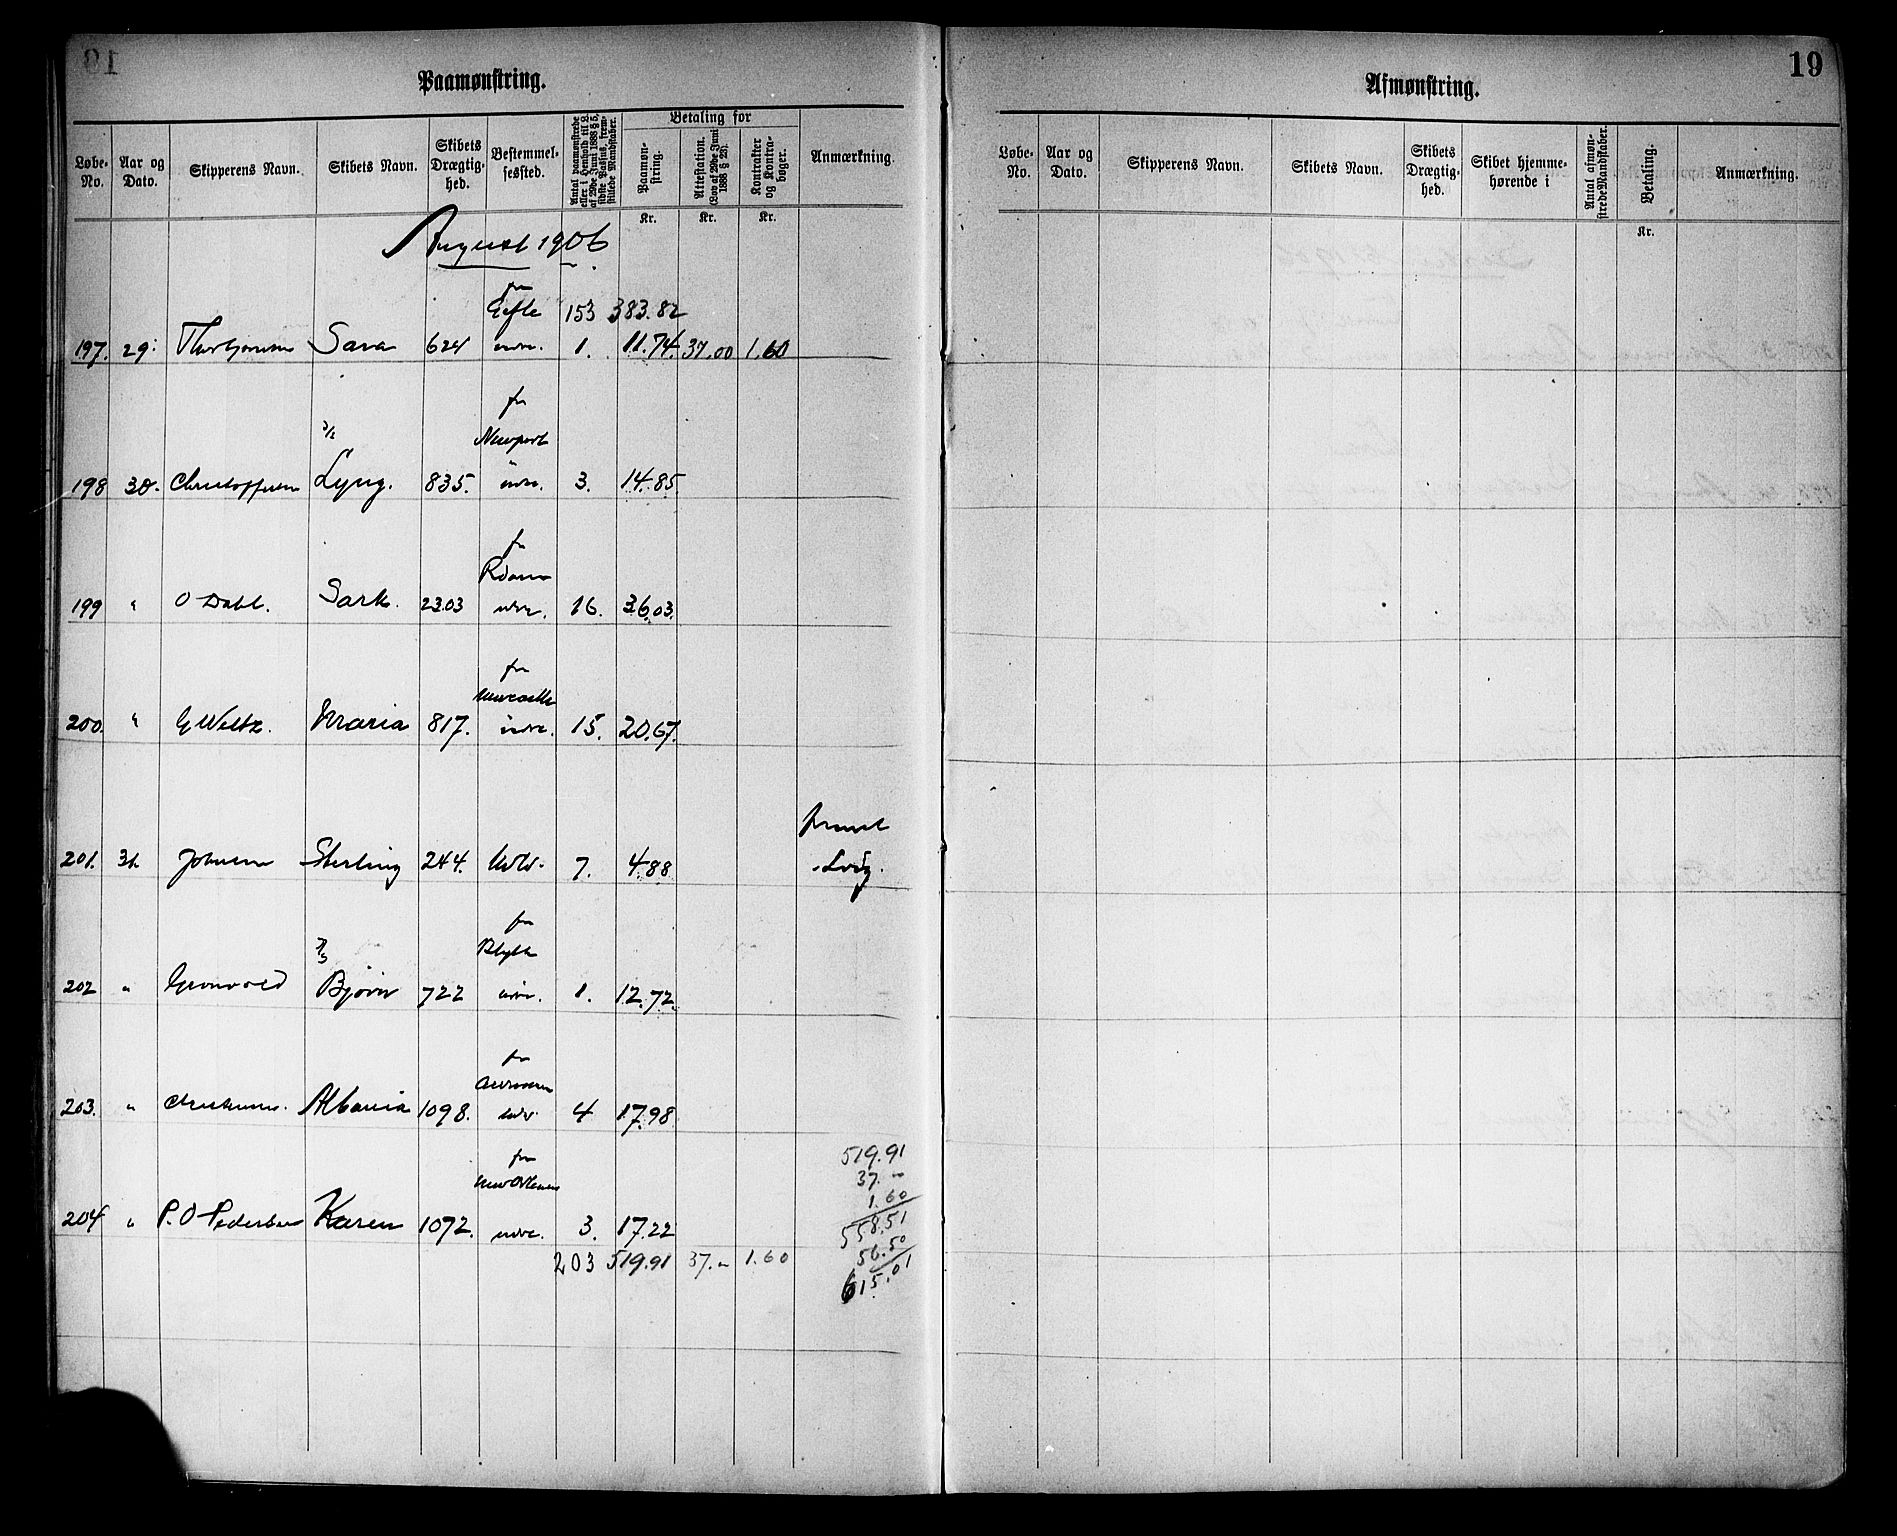 Paamønstring.
Løbe-No. Aar og Dato. Skipperens Navn. Skibets Navn. Skibets Drægtighed. Bestemmelsessted. Antal paamønstrede eller i Henhold til L. af 29de Juni 1888 § 5, sidste Passus, fremstillede Mandskaber. Betaling for Paamønstring. Attestation. (Lov af 29de Juni 1888 § 28). Kontrakter og Kontrabøger. Anmærkning.
Kr. Kr. Kr.
August 1906
fra
Gefle 153 383.82
197. 29. Sara 624 indre. 1. 11.74 37.00 1.60
fra
Newport
198 30. Christophersen Lyng. 835. indre. 3. 14.85
fra
199 " O Dahl. Sark. 2303 indre. 16. 36.03.
fra
Newcastle
200. " Maria 817. indre. 15. 20.67.
201. 31. Johnsen Sterling 244. 7. 4.88
fra
Blyth
202 " Grønvold Bjørn 722 indre. 1. 12.72.
fra
203. " Albania 1098. indre 4 17.98
fra
New Orleans
204 " P. O Pedersen Karen 1072. indre. 3. 17.22
203 519.91 37.- 1.60
519.91
37.-
1.60
558.51
56.50
615.01
19
Afmønstring.
Løbe-No. Aar og Dato. Skipperens Navn. Skibets Navn. Skibets Drægtighed. Skibet hjemmehørende i Antal afmønstrede Mandskaber. Betaling. Anmærkning.
Kr.